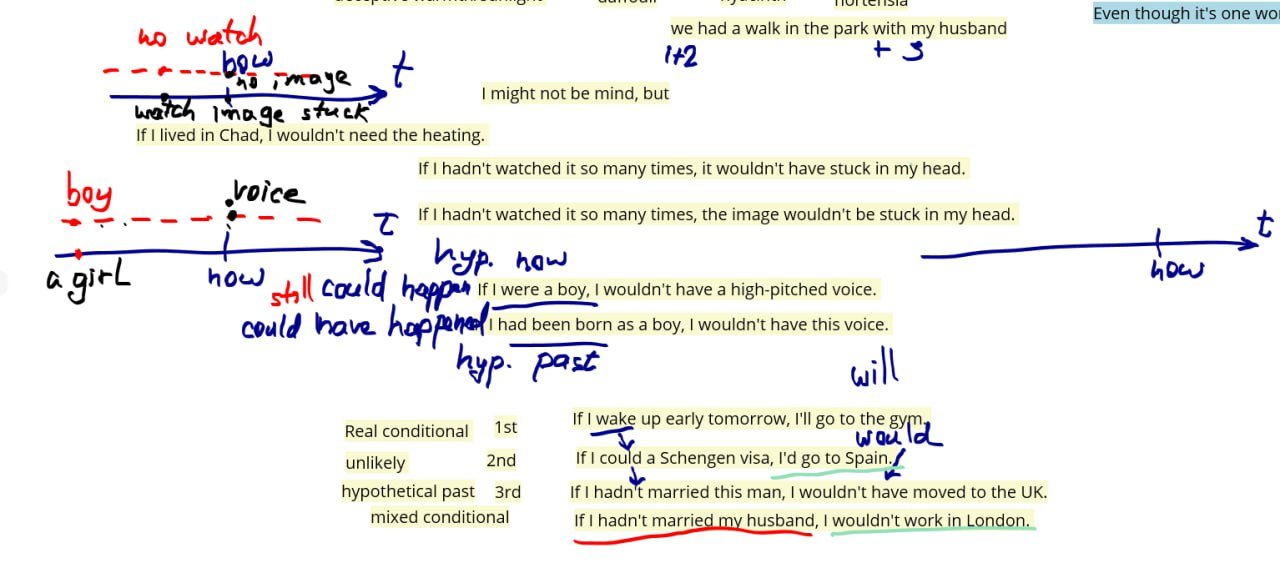 daffodil
Even though it's one
we had a walk in the park with my husband
1+2
+ 3
no watch
now
no image
t
I might not be mind, but
watch image stuck
If I lived in Chad, I wouldn't need the heating.
If I hadn't watched it so many times, it wouldn't have stuck in my head.
boy
voice
If I hadn't watched it so many times, the image wouldn't be stuck in my head.
t
t
a girl
now
hyp. now
now
still could happen
If I were a boy, I wouldn't have a high-pitched voice.
could have happened
I had been born as a boy, I wouldn't have this voice.
hyp. past
will
Real conditional 1st If I wake up early tomorrow, I'll go to the gym.
would
unlikely 2nd If I could a Schengen visa, I'd go to Spain.
hypothetical past 3rd If I hadn't married this man, I wouldn't have moved to the UK.
mixed conditional If I hadn't married my husband, I wouldn't work in London.